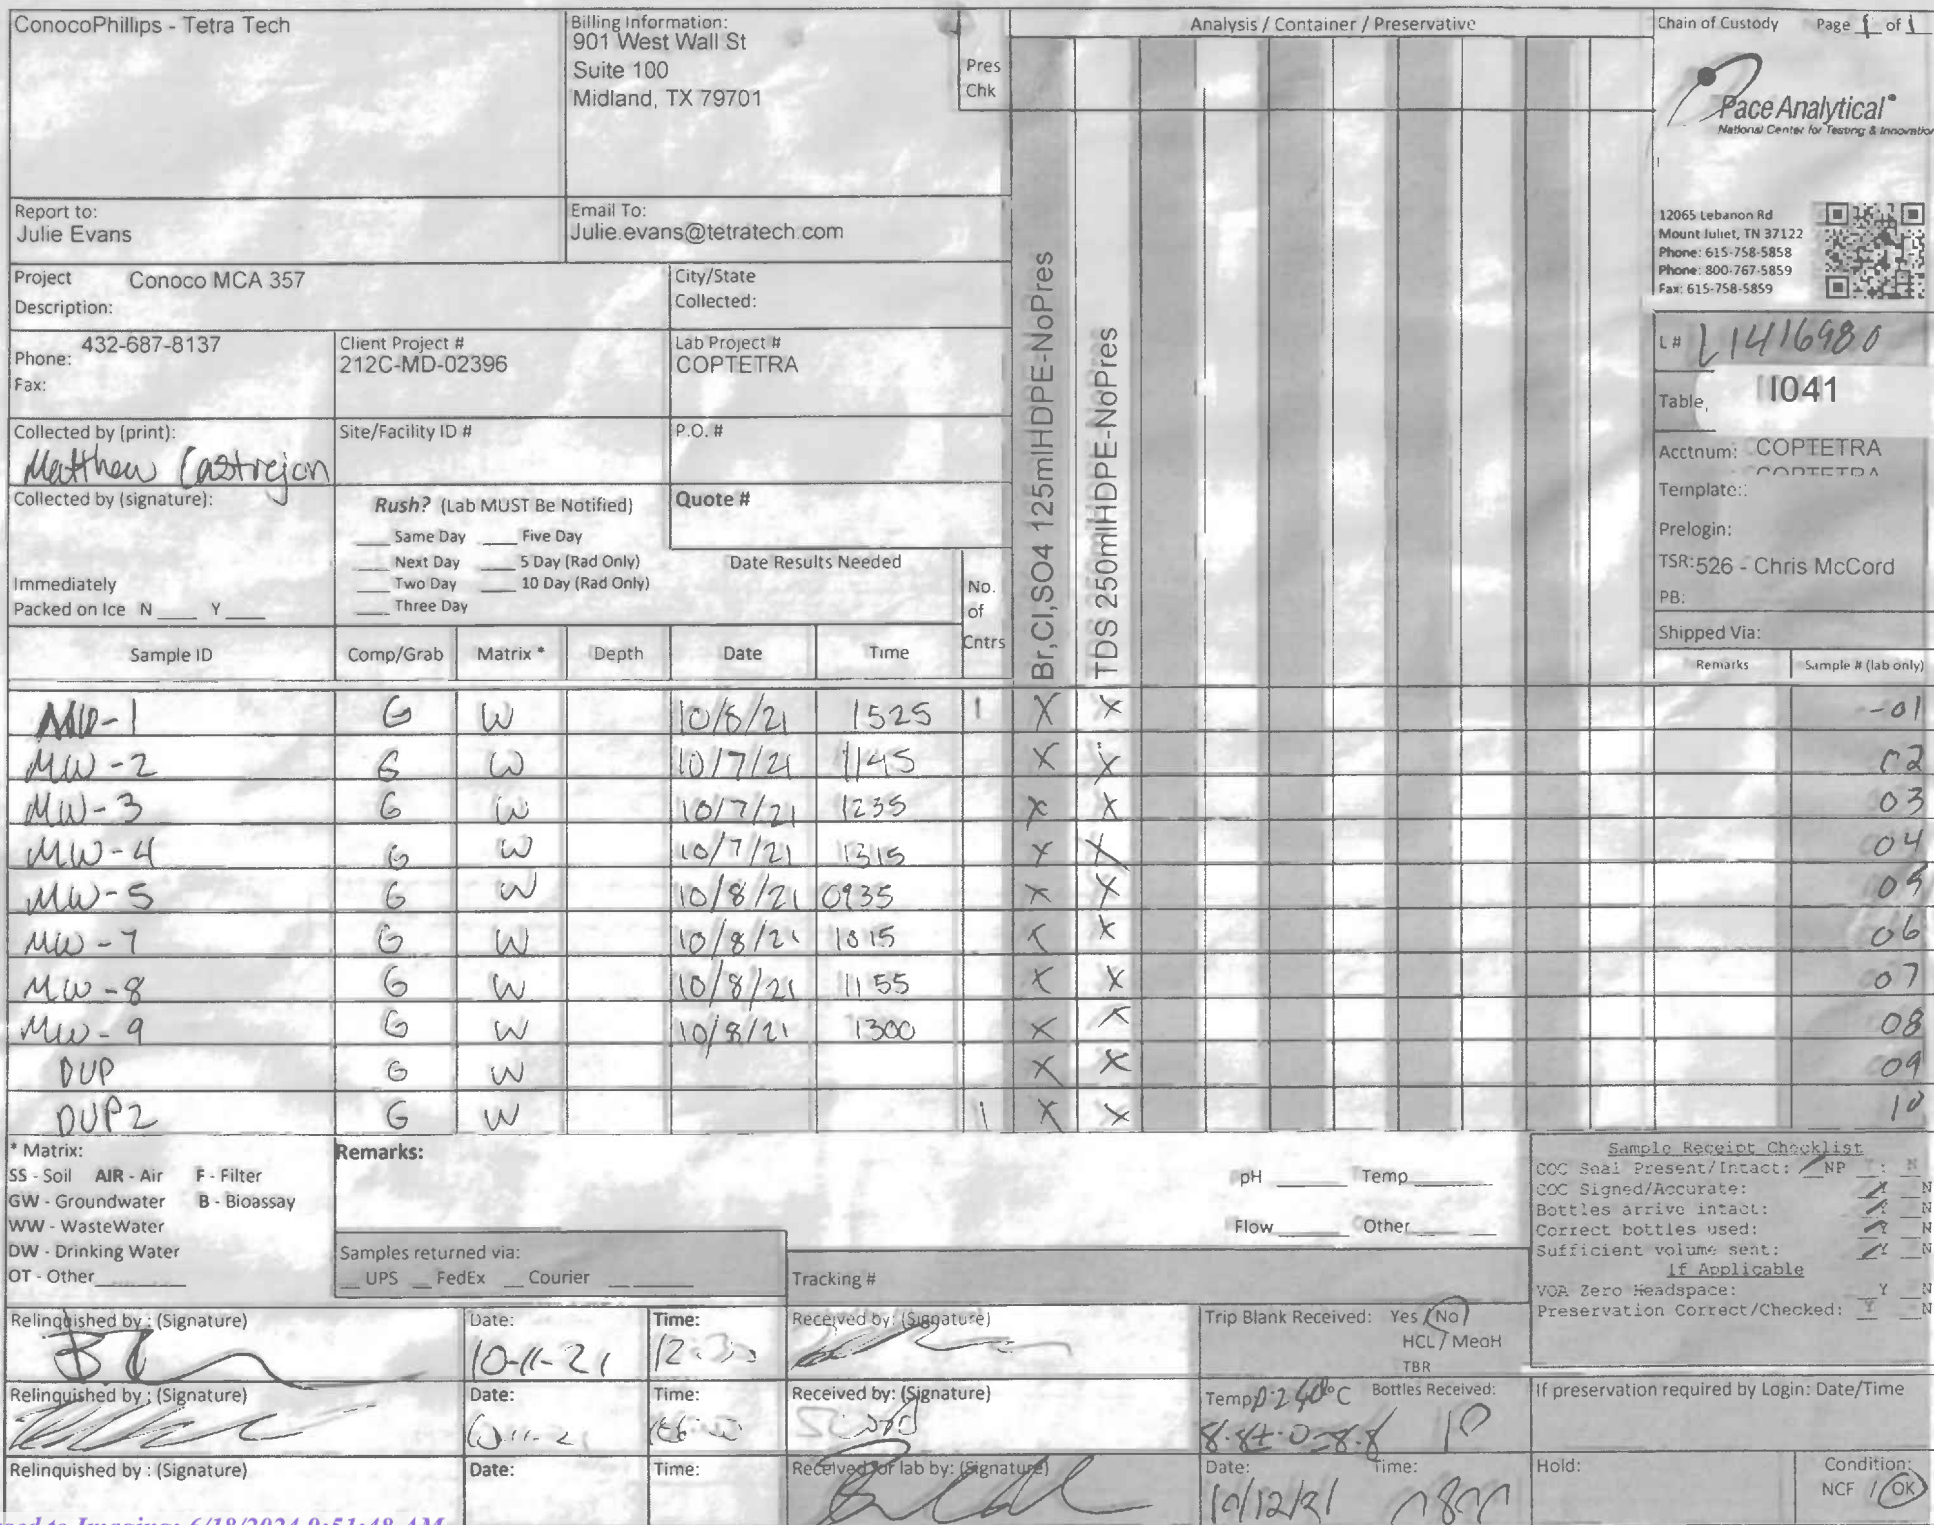 ConocoPhillips - Tetra Tech
Billing Information:
901 West Wall St
Suite 100
Midland, TX 79701
Pres
Chk
Analysis / Container / Preservative
Chain of Custody Page 1 of 1
Pace Analytical®
National Center for Testing & Innovation
12065 Lebanon Rd
Mount Juliet, TN 37122
Phone: 615-758-5858
Phone: 800-767-5859
Fax: 615-758-5859
Report to:
Julie Evans
Email To:
Julie.evans@tetratech.com
Project Description: Conoco MCA 357
City/State
Collected:
Phone: 432-687-8137
Fax:
Client Project #
212C-MD-02396
Lab Project #
COPTETRA
L# L1416980
Table, I041
Acctnum: COPTETRA
COPTETRA
Template:
Prelogin:
TSR: 526 - Chris McCord
PB:
Shipped Via:
Collected by (print):
Matthew Castrejon
Site/Facility ID #
P.O. #
Collected by (signature):
Rush? (Lab MUST Be Notified)
___ Same Day ___ Five Day
___ Next Day ___ 5 Day (Rad Only)
___ Two Day ___ 10 Day (Rad Only)
___ Three Day
Quote #
Date Results Needed
Immediately
Packed on Ice N ___ Y ___
No.
of
Cntrs
Br,Cl,SO4 125mlHDPE-NoPres
TDS 250mlHDPE-NoPres
Sample ID Comp/Grab Matrix * Depth Date Time Remarks Sample # (lab only)
MW-1 G W 10/8/21 1525 1 X X -01
MW-2 G W 10/7/21 1145 X X 02
MW-3 G W 10/7/21 1235 X X 03
MW-4 G W 10/7/21 1315 X X 04
MW-5 G W 10/8/21 0935 X X 05
MW-7 G W 10/8/21 1015 X X 06
MW-8 G W 10/8/21 1155 X X 07
MW-9 G W 10/8/21 1300 X X 08
DUP G W X X 09
DUP2 G W 1 X X 10
* Matrix:
SS - Soil AIR - Air F - Filter
GW - Groundwater B - Bioassay
WW - WasteWater
DW - Drinking Water
OT - Other
Remarks:
pH ______ Temp ______
Flow ______ Other ______
Samples returned via:
__ UPS __ FedEx __ Courier
Tracking #
Sample Receipt Checklist
COC Seal Present/Intact: NP Y N
COC Signed/Accurate: Y N
Bottles arrive intact: Y N
Correct bottles used: Y N
Sufficient volume sent: Y N
If Applicable
VOA Zero Headspace: Y N
Preservation Correct/Checked: Y N
Relinquished by : (Signature)
Date:
10-11-21
Time:
Received by: (Signature)
Trip Blank Received: Yes / No
HCL / MeoH
TBR
Relinquished by : (Signature)
Date:
Time:
Received by: (Signature)
Temp °C
Bottles Received:
10
If preservation required by Login: Date/Time
Relinquished by : (Signature)
Date:
Time:
Received for lab by: (Signature)
Date:
10/12/21
Time:
Hold:
Condition:
NCF / OK
to Imaging: 6/18/2024 9:51:48 AM